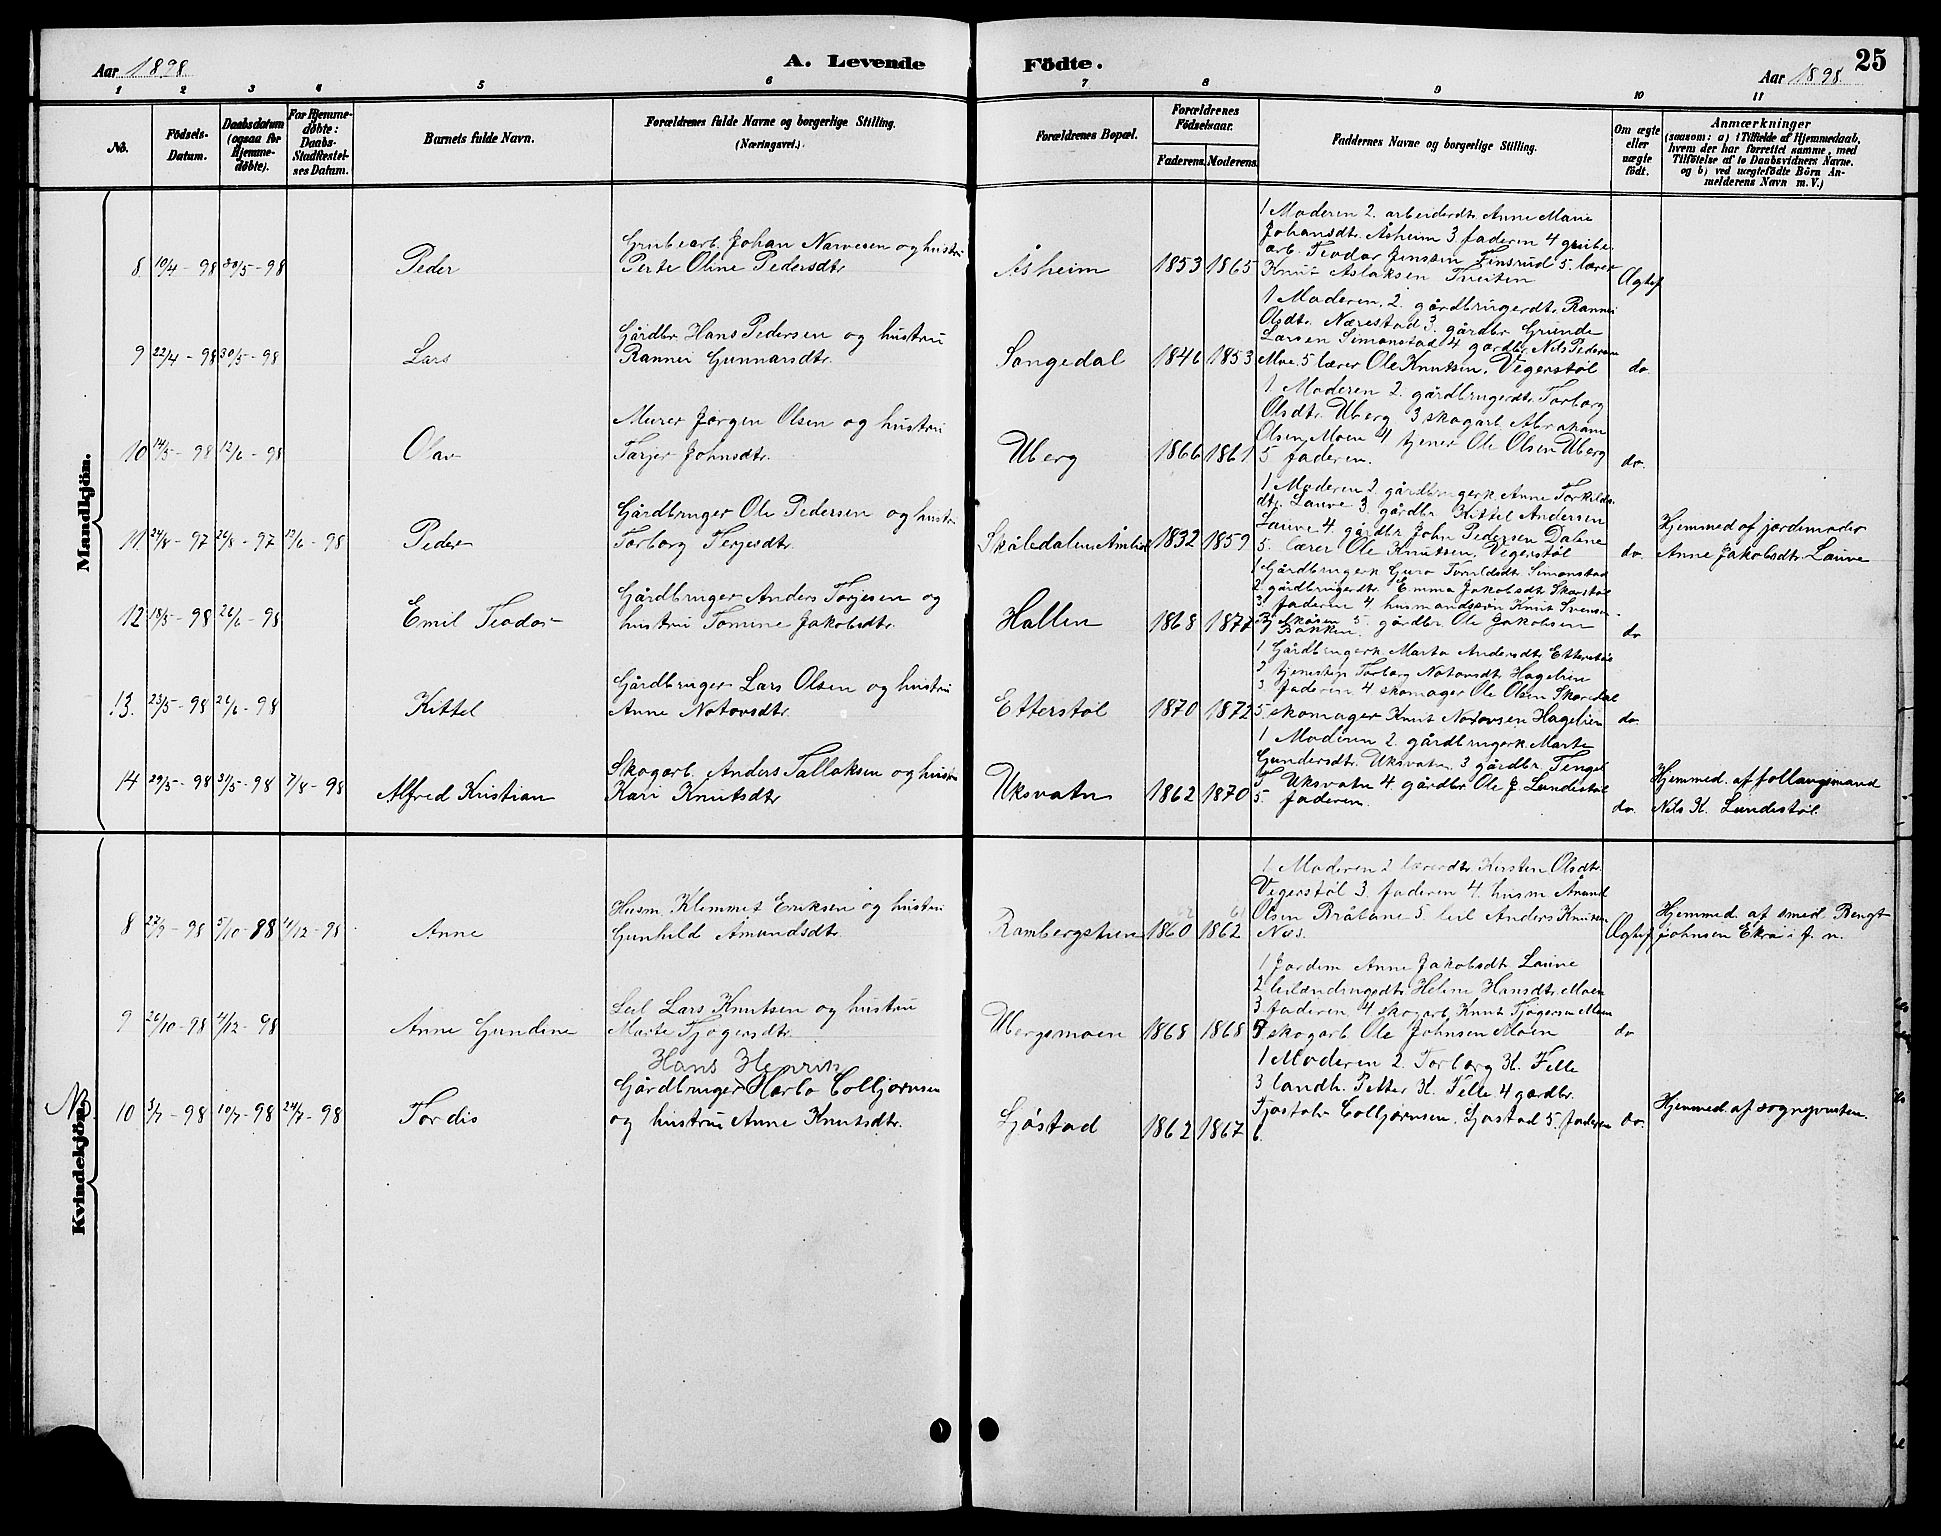 Aar 1898
A. Levende
Födte.
Aar 1898.
25
1 2 3 4 5 6 7 8 9 10 11
No.
Födsels-
Datum.
Daabsdatum
(ogsaa for
Hjemme-
döbte).
For Hjemme-
döbte:
Daabs-
Stadfæstel-
ses Datum.
Barnets fulde Navn.
Forældrenes fulde Navne og borgerlige Stilling.
(Næringsvei.)
Forældrenes Bopæl.
Forældrenes
Födselsaar.
Faderens. Moderens.
Faddernes Navne og borgerlige Stilling.
Om ægte
eller
uægte
födt.
Anmærkninger
(saasom: a) i Tilfælde af Hjemmedaab,
hvem der har forrettet samme, med
Tilföielse af to Daabsvidners Navne,
og b) ved uægtefödte Börn An-
melderens Navn m. V.)
Mandkjön.
8 19/4 - 98 30/5 - 98
Peder
Grubearb. Johan Narvesen og hustru
Perte Oline Pedersdtr.
Åsheim
1853 1865
1 Moderen 2. arbeiderdtr Anne Marie
Johansdtr. Åsheim 3 faderen 4 grube
arb. Teodor Jenssen Finsrud 5. lærer
Knut Aslaksen Tveiten
Ægtef
9 22/4 - 98 30/5 - 98
Lars
Gårdbr. Hans Pedersen og hustru
Rannei Gunnarsdtr.
Songedal
1846 1853
1 Moderen. 2. gårdbrugerdtr. Rannei
Olsdtr. Nærestad 3. gårdbr Grunde
Larsen Simonstad 4 gårdbr. Nils Pedersen
Moe. 5 lærer Ole Knutsen, Vegerstøl
do.
10 14/5 - 98 12/6 - 98
Olav
Murer Jørgen Olsen og hustru
Tarjer Johnsdtr.
Uberg
1866 1861
1 Moderen 2. gårdbrugerdtr. Torborg
Olsdtr. Uberg 3 skogarb. Abraham
Olsen, Moen 4 tjener Ole Olsen Uberg
5 faderen.
do.
11. 24/8 - 97 26/8 - 97 12/6 - 98
Peder
Gårdbruger Ole Pedersen og hustru
Torborg Terjesdtr.
Skåledalen Åmli
1832 1859
1 Moderen 2. gårdbrugerk. Anne Torkilds
dtr. Lauve 3 gårdbr Kittel Andersen
Lauve 4. gårdbr John Pedersen Dalene
5. lærer Ole Knutsen, Vegerstøl
do
Hjemmed af jordemoder
Anne Jakobsdtr. Lauve
12 18/5 - 98 26/6 - 98
Emil Teodor
Gårdbruger Anders Torjesen og
hustru Tomine Jakobsdtr.
Hallen
1868 1877
1 Gårdbrugerk Guro Simonstad
2 gårdbrugerdtr. Emma Jakobsdtr
3. faderen 4 husmandssøn Knut Svensen
5 gårdbr. Ole Jakobsen
Bakken.
do
13. 23/5 - 98 26/6 - 98
Kittel
Gårdbruger Lars Olsen og hustru
Anne Notovsdtr.
Etterstøl
1870 1872
1 Gårdbrugerk Marta Andersdtr Etterstøl
2 Torborg Notovsdtr Hagelien
3. faderen 4 skomager Ole Olsen
5. skomager Knut Notovsen Hagelien
do
14 29/5 - 98 31/5 - 98 7/8 - 98
Alfred Kristian
Skogarb. Anders Tallaksen og hustru
Kari Knutsdtr
Uksvatn
1862 1870
1 Moderen 2. gårdbrugerk. Marte
Gundersdtr. Uksvatn 3 gårdbr. Tengel
T. Uksvatn 4. gårdbr Ole J. Lundestøl
5. faderen.
do.
Hjemmed. af
Nils K. Lundestøl.
Kvindekjön.
8 27/9 - 98 5/10 - 88 4/12 - 98
Anne
Husm. Klemmet Eriksen og hustru
Gunhild Amundsdtr.
Rambergstuen
1860 1862
1 Moderen 2 lærerdtr. Kirsten Olsdtr.
Vegerstøl 3. faderen 4. husm Ånund
Olsen Bråtane 5. leil Anders Knutsen
Næs.
Ægtef
Hjemmed. af smed Bengt
Johnsen Ekra i f. n.
9 26/10 - 98 4/12 - 98
Anne Gundine
Leil Lars Knutsen og hustru
Marte Tjøgersdtr.
Ubergsmoen
1868 1868
1 Jordem Anne Jakobsdtr. Lauve
2 Heline Hansdtr. Moen
3 faderen 4 skogarb Knut Tjøgersen Moen
5 skogarb. Ole Johnsen Moen
do
10 3/7 - 98 10/7 - 98 24/7 - 98
Tordis
Hans Henrik
Gårdbruger Harbo Colbjørnsen
og hustru Anne Knutsdtr.
Sjøstad
1862 1867
1 Moderen 2. Torborg K. Felle
3 landh. Petter K. Felle 4 gårdbr.
Tjøstolv Colbjørnsen, Sjøstad 5. faderen
6.
do.
Hjemmed. af sogneprusten.